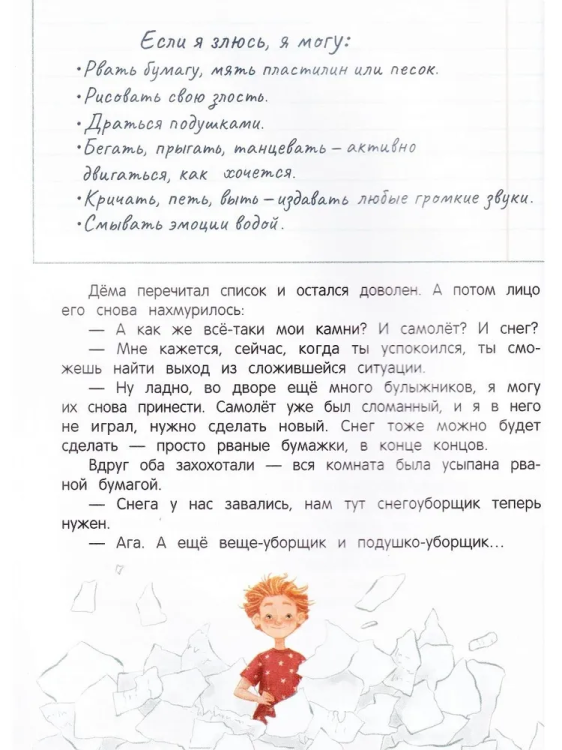 Если я злюсь, я могу:
•Рвать бумагу, мять пластилин или песок.
•Рисовать свою злость.
•Драться подушками.
•Бегать, прыгать, танцевать – активно
двигаться, как хочется.
•Кричать, петь, выть – издавать любые громкие звуки.
•Смывать эмоции водой.
Дёма перечитал список и остался доволен. А потом лицо
его снова нахмурилось:
— А как же всё-таки мои камни? И самолёт? И снег?
— Мне кажется, сейчас, когда ты успокоился, ты смо-
жешь найти выход из сложившейся ситуации.
— Ну ладно, во дворе ещё много булыжников, я могу
их снова принести. Самолёт уже был сломанный, и я в него
не играл, нужно сделать новый. Снег тоже можно будет
сделать — просто рваные бумажки, в конце концов.
Вдруг оба захохотали — вся комната была усыпана рва-
ной бумагой.
— Снега у нас завались, нам тут снегоуборщик теперь
нужен.
— Ага. А ещё веще-уборщик и подушко-уборщик...